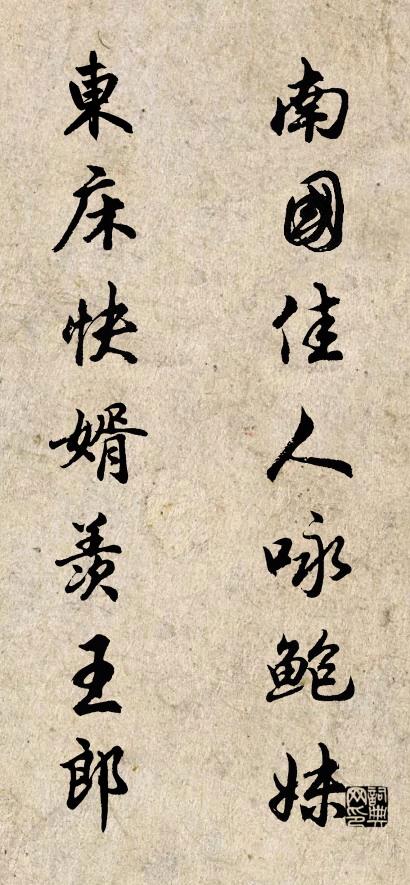 南國佳人咏鮑妹
東床快婿羨王郎
詞典网印